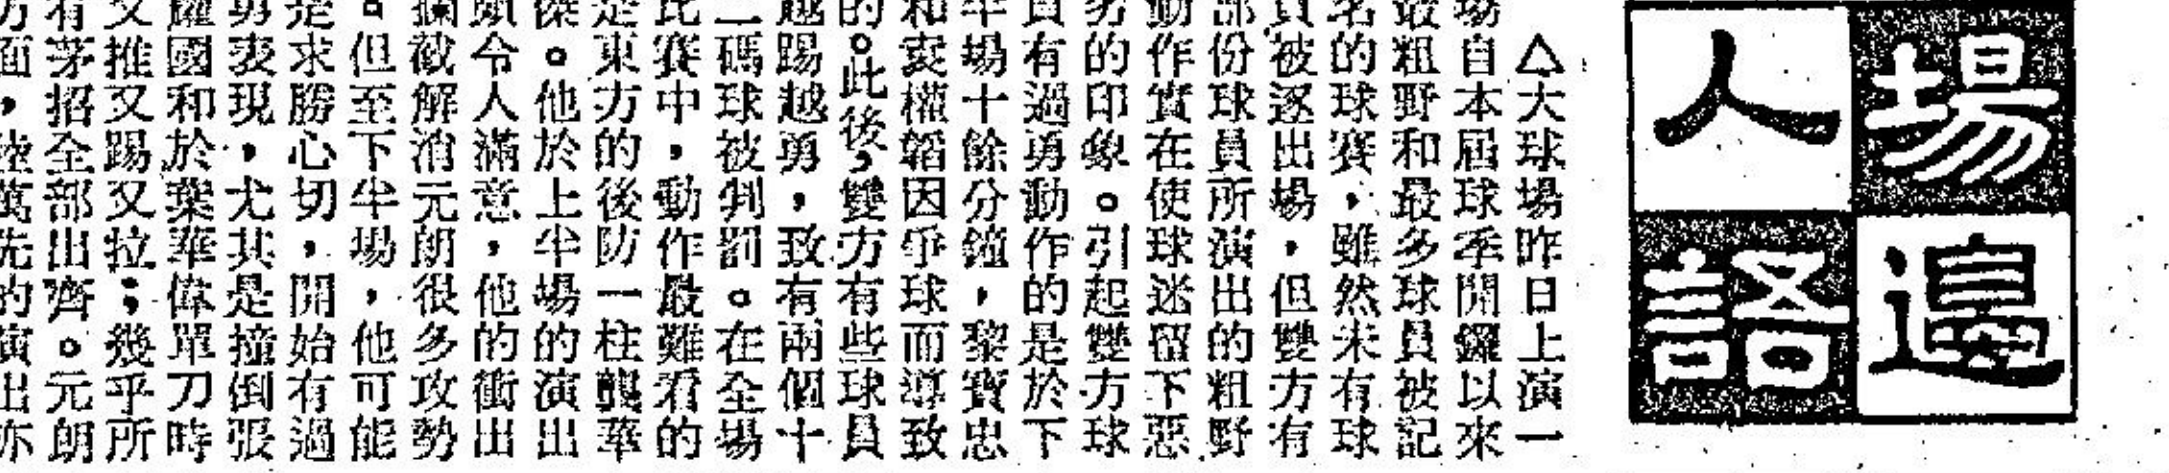 場邊人語
△大球場昨日上演一
場自本屆球季開鑼以來
最粗野和最多球員被記
名的球賽，雖然未有球
員被逐出場，但雙方有
部份球員所演出的粗野
動作實在使球迷留下惡
劣的印象。引起雙方球
員有過勇動作的是於下
半場十餘分鐘，黎寶忠
和袁權韜因爭球而導致
的。此後，雙方有些球員
越踢越勇，致有兩個十
二碼球被判罰。在全場
比賽中，動作最難看的
是東方的後防一柱龔華
傑。他於上半場的演出
頗令人滿意，他的衝出
攔截解消元朗很多攻勢
。但至下半場，他可能
是求勝心切，開始有過
勇表現，尤其是撞倒張
耀國和於葉華偉單刀時
又推又踢又拉；幾乎所
有茅招全部出齊。元朗
方面，陸萬先的演出亦